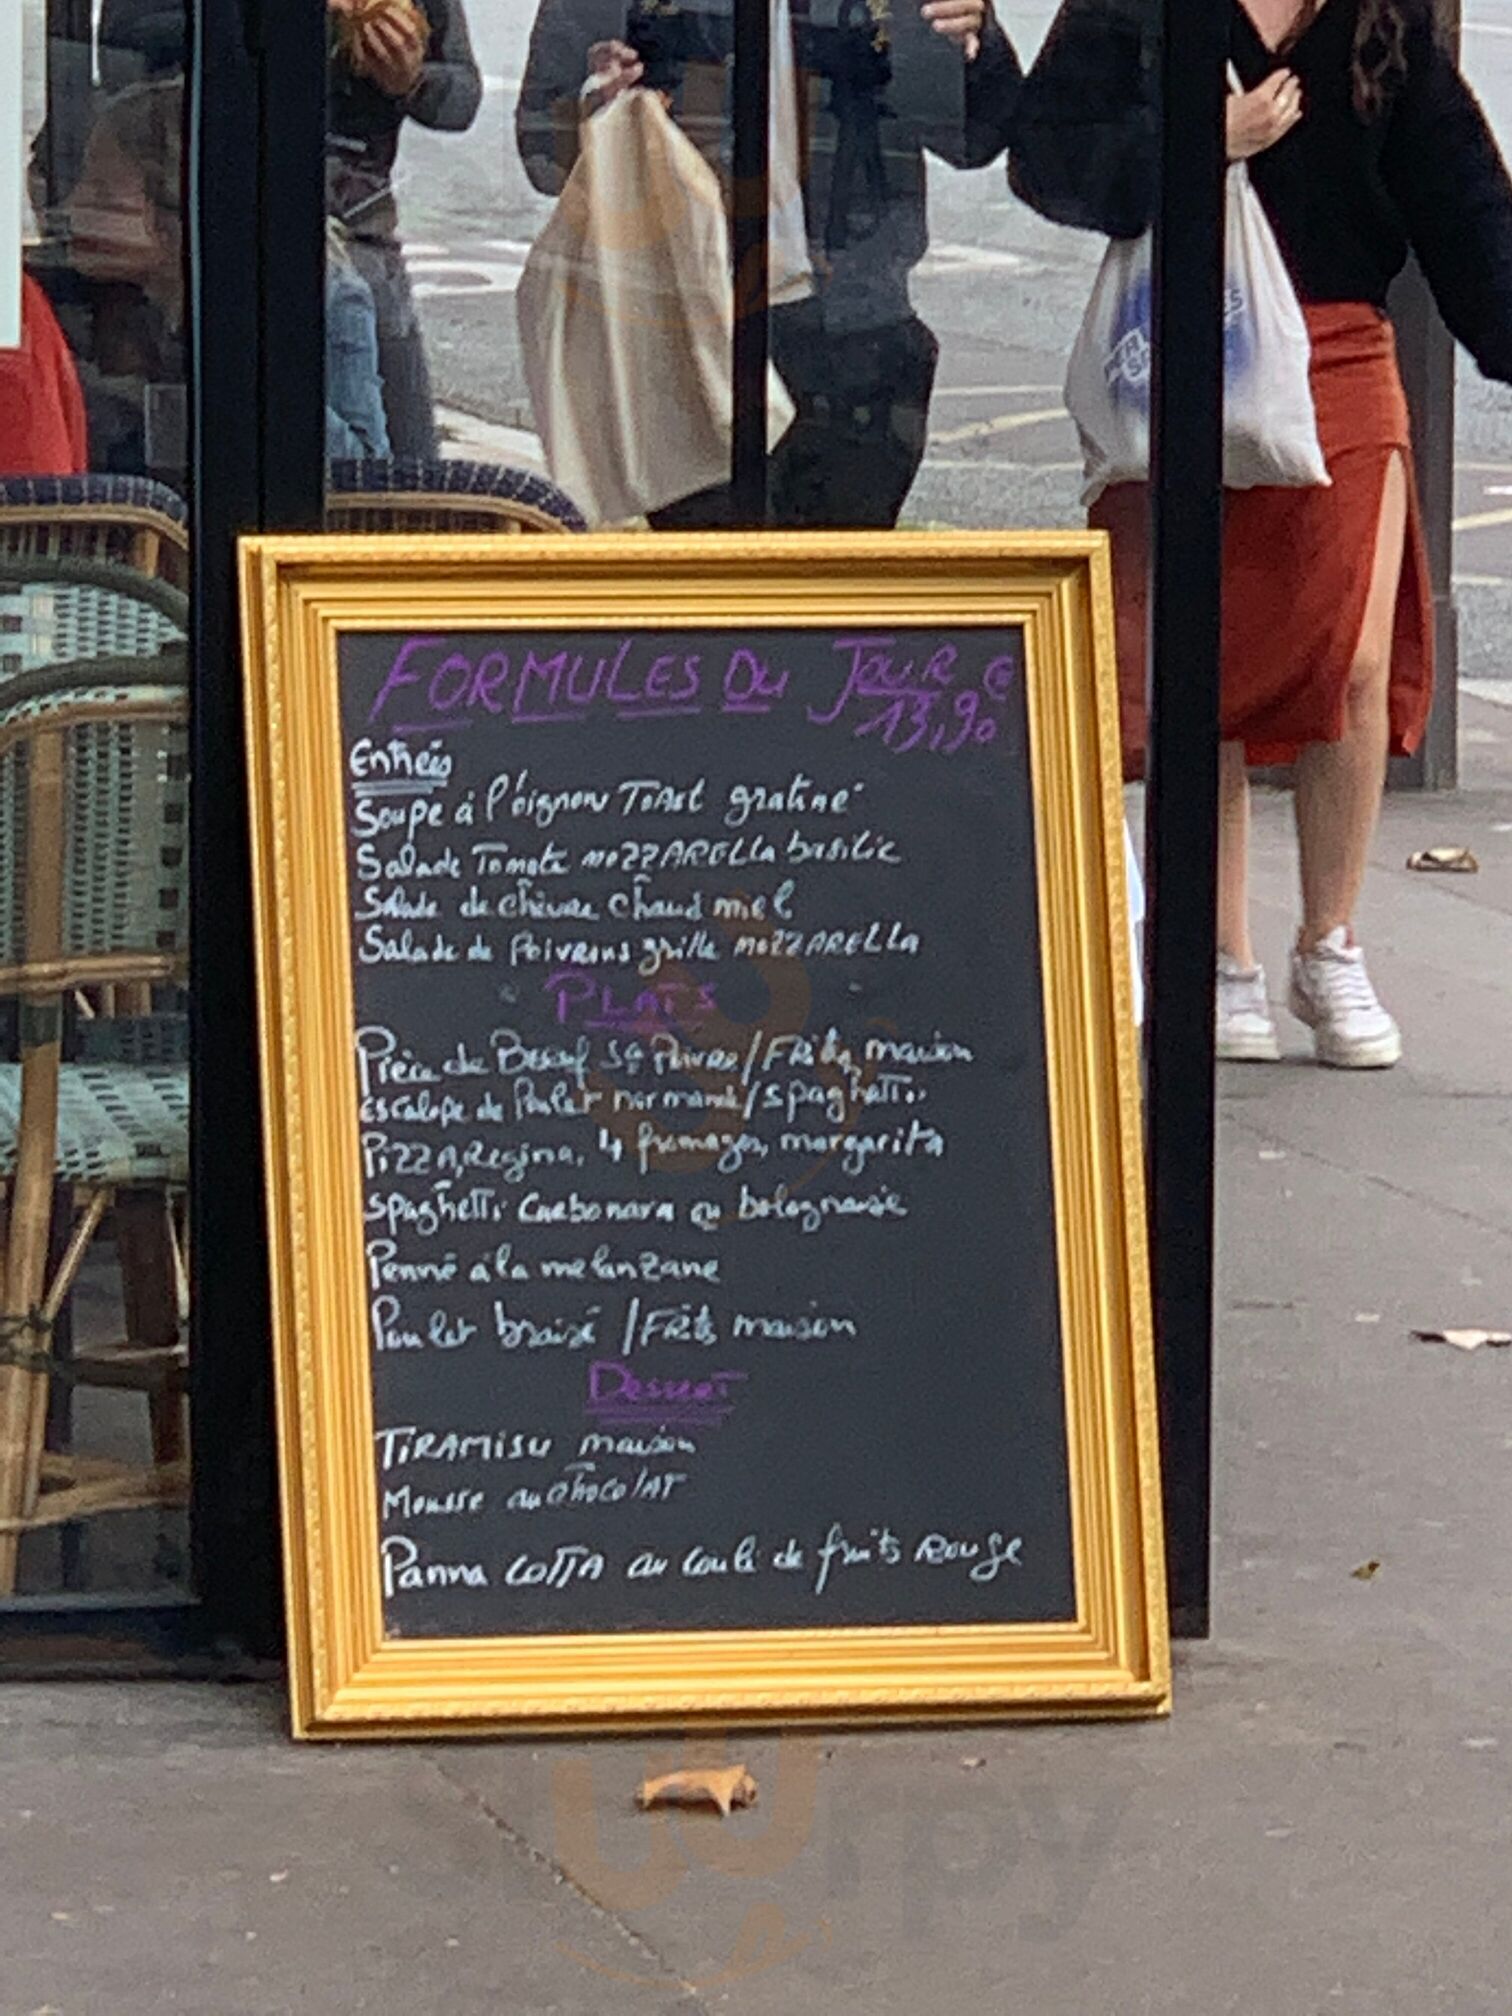 FORMULES DU JOUR @
13,90
Entrées
Soupe à l'oignon Toast gratiné
Salade Tomate mozzARELLA basilic
Salade de chèvre chaud miel
Salade de Poivrons grillé mozzARELLA
PLATS
Pièce de Boeuf Sce Poivre/FRites maison
Escalope de Poulet normande/spaghetti
PizzA, Regina, 4 fromages, margarita
spaghetti Carbonara ou bolognaise
Penné à la melanzane
Poulet braisé /FRites maison
Dessert
TiRAMiSu maison
Mousse au chocolAT
Panna COTTA au coulis de fruits Rouge
urpy